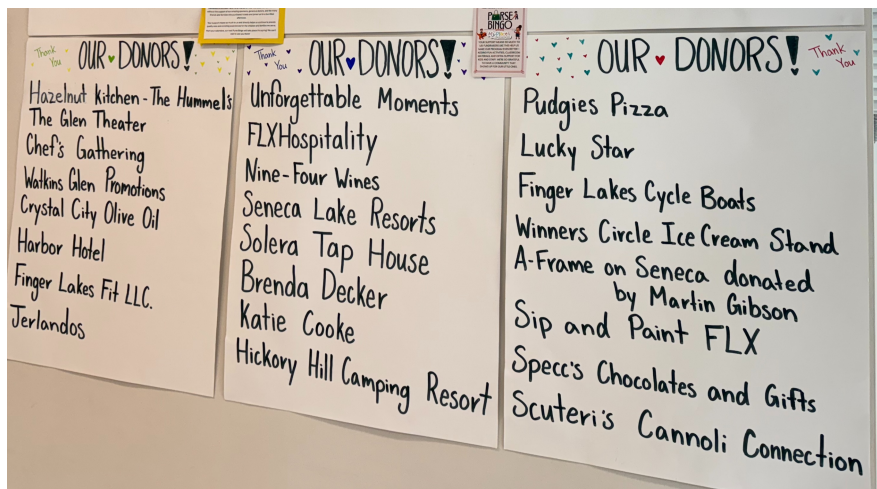 Thank
You
OUR DONORS!
Hazelnut Kitchen - The Hummel's
The Glen Theater
Chef's Gathering
Watkins Glen Promotions
Crystal City Olive Oil
Harbor Hotel
Finger Lakes Fit LLC.
Jerlandos
Thank
You
OUR DONORS!
Unforgettable Moments
FLXHospitality
Nine-Four Wines
Seneca Lake Resorts
Solera Tap House
Brenda Decker
Katie Cooke
Hickory Hill Camping Resort
PURSE
BINGO
OUR DONORS!
Thank
You
Pudgies Pizza
Lucky Star
Finger Lakes Cycle Boats
Winners Circle Ice Cream Stand
A-Frame on Seneca donated
by Martin Gibson
Sip and Paint FLX
Specc's Chocolates and Gifts
Scuteri's Cannoli Connection